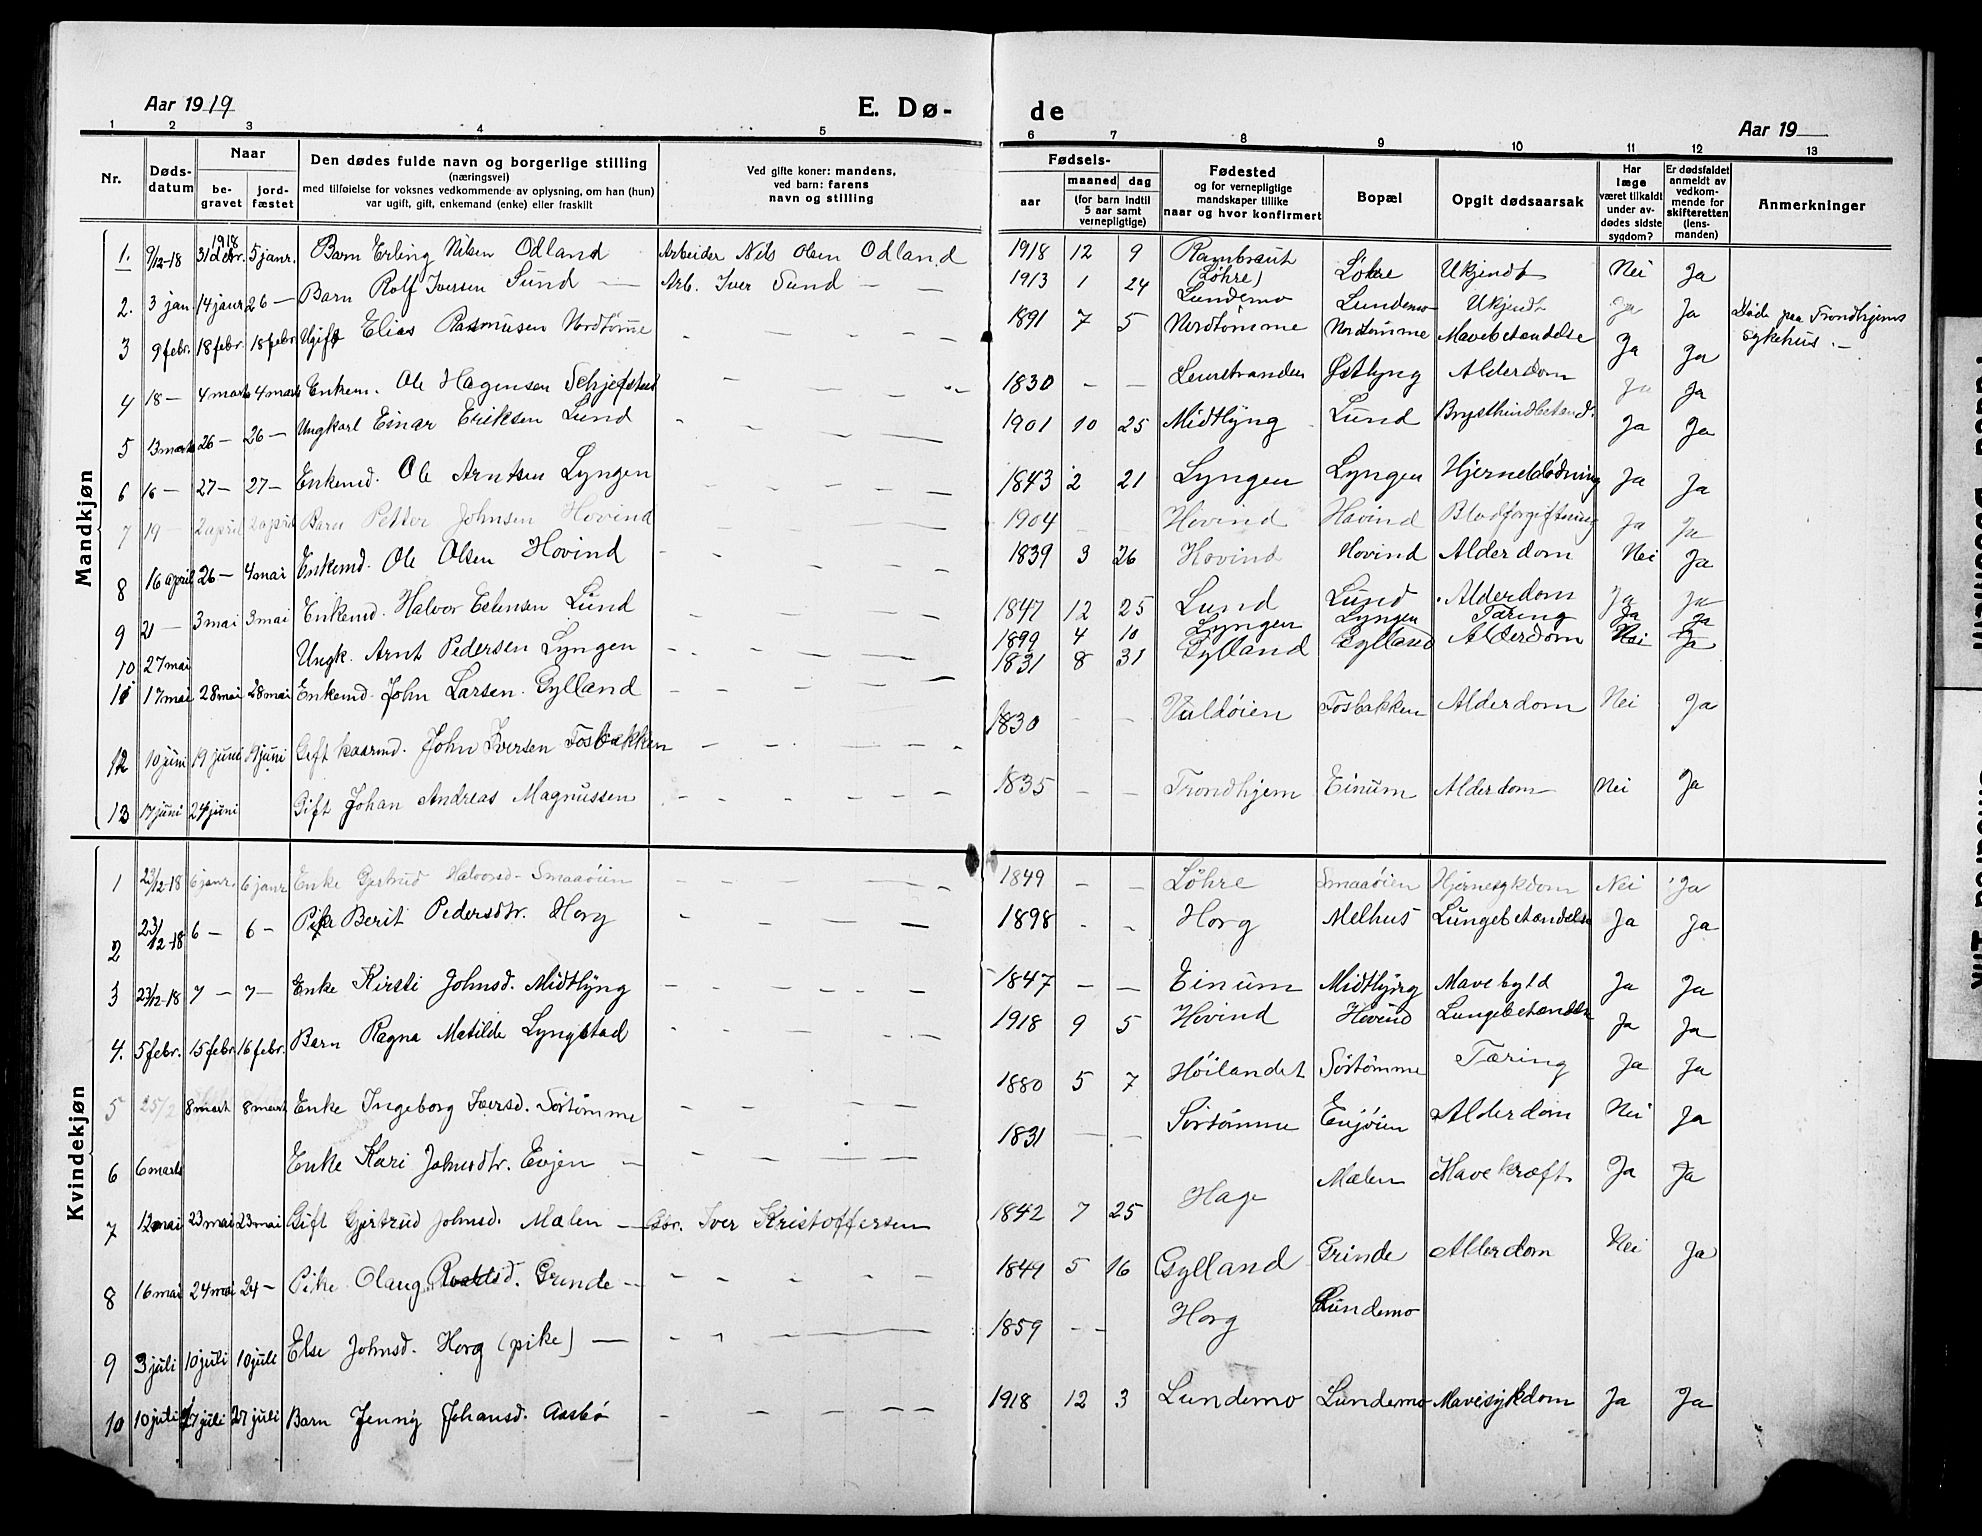 Aar 1919 E. Dø- de Aar 19
1 2 3 4 5 6 7 8 9 10 11 12 13
Nr. Dødsdatum Naar begravet jordfæstet
Den dødes fulde navn og borgerlige stilling
(næringsvei)
med tilføielse for voksnes vedkommende av oplysning, om han (hun)
var ugift, gift, enkemand (enke) eller fraskilt
Ved gifte koner: mandens,
ved barn: farens
navn og stilling
Fødsels- aar maaned dag
(for barn indtil 5 aar samt vernepligtige)
Fødested
og for vernepligtige
mandskaper tillike
naar og hvor konfirmert
Bopæl
Opgit dødsaarsak
Har læge været tilkaldt under avdødes sidste sygdom?
Er dødsfaldet anmeldt av vedkommende for skifteretten (lensmanden)
Anmerkninger
Mandkjøn
1. 9/12-18 1918 31 dcbr. 5 janr. Barn Erling Nilsen Odland Arbeider Nils Olsen Odland 1918 12 9 Rambraut (Löhre) Löhre Ukjendt Nei Ja
2. 3 jan. 14 janr 26 — Barn Rolf Iversen Sund — Arb. Iver Sund — — 1913 1 24 Lundemo Lundemo Ukjendt Ja Ja
3 9 febr. 18 febr. 18 febr Ugift Elias Rasmusen Nordtømme 1891 7 5 Nordtömme Nordtømme Mavebetændelse Ja Ja Döde paa Trondhjems sykehus. —
4 18 — 4 marts 4 marts Enkem. Ole Hagensen 1830 — — Leinstranden Østlyng Alderdom Ja Ja
5 13 marts 26 — 26 — Ungkarl Einar Eriksen Lund 1901 10 25 Midtlyng Lund Brysthindbetænd. Ja Ja
6 16 — 27 — 27 — Enkemd. Ole Arntsen Lyngen 1843 2 21 Lyngen Lyngen Hjerneblödning Ja Ja
7 19 — 2 april 2 april Barn Petter Johnsen Hovind 1904 — — Hovind Hovind Blodforgiftning Ja Ja
8 16 april 26 — 4 mai Enkemd. Ole Olsen Hovind 1839 3 26 Hovind Hovind Alderdom Nei Ja
9 21 — 3 mai 3 mai Enkemd. Halvor Estensen Lund 1847 12 25 Lund Lund Alderdom Ja Ja
10 27 mai Ungk. Arnt Pedersen Lyngen 1899 4 10 Lyngen Lyngen Tæring Ja Ja
11 17 mai 28 mai 28 mai Enkemd. John Larsen Gylland 1831 8 31 Gylland Gylland Alderdom Nei Ja
12 10 juni 19 juni 19 juni Gift kaarmd. John Iversen Fosbakken 1830 — — Valdöien Fosbakken Alderdom Nei Ja
13 17 juni 24 juni Gift Johan Andreas Magnussen 1835 — — Trondhjem Einum Alderdom Nei Ja
Kvindekjøn
1 23/12-18 6 janr. 6 janr Enke Gjertrud Halvorsd. Smaaöien 1849 — — Löhre Smaaöien Hjernesykdom Nei Ja
2 23/12-18 6 — 6 — Pike Berit Pedersdtr. Horg 1898 - - Horg Melhus Lungebetændelse Ja Ja
3 23/12-18 7 — 7 — Enke Kirsti Johnsd. Midtlyng 1847 — — Einum Midtlyng Mavebyld Ja Ja
4. 5 febr. 15 febr 16 febr. Barn Ragna Matilde Lyngstad 1918 9 5 Hovind Hovind Lungebetændelse Ja Ja
5 25/2 8 mart 8 mart Enke Ingeborg Iversd. Sörtömme 1880 5 7 Höilandet Sörtömme Tæring Ja Ja
6 6 marts Enke Kari Johnsdtr. Evjen — 1831 — — Sörtömme Evjöien Alderdom Nei Ja
7 12 mai 23 mai 23 mai Gift Gjertrud Johnsd. Mælen — Iver Kristoffersen 1842 7 25 Hage Mælen Mavekræft Ja Ja
8 16 mai 24 mai 24 — Pike Olaug Grinde — 1849 5 16 Gylland Grinde Alderdom Nei Ja
9 3 juli 10 juli 10 juli Else Johnsd. Horg (pike) — 1859 — — Horg Lundemo
10 10 juli 27 juli 27 juli Barn Jenny Johansd. Aasbö 1918 12 3 Lundemo Lundemo Mavesykdom Ja Ja